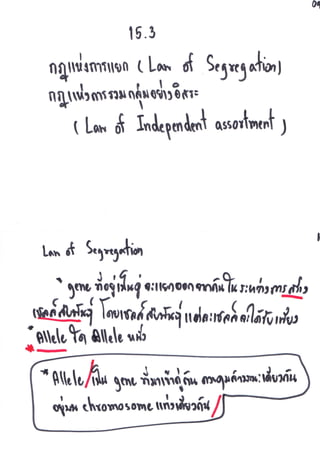 09
15.3
กฎแห่งการแยก ( Law of Segregation)
กฎแห่งการรวมกลุ่มอย่างอิสระ
( Law of Independent assortment )
Law of Segregation
* gene ที่อยู่เป็นคู่ จะแยกออกจากกันในระหว่างการสร้าง
เซลล์สืบพันธุ์ โดยเซลล์สืบพันธุ์แต่ละเซลล์จะได้รับเพียง
* Allele ใด Allele หนึ่ง
* Allele / เป็น gene ที่มาเข้าคู่กัน ควบคุมลักษณะเดียวกัน
อยู่บน chromosome แท่งเดียวกัน /